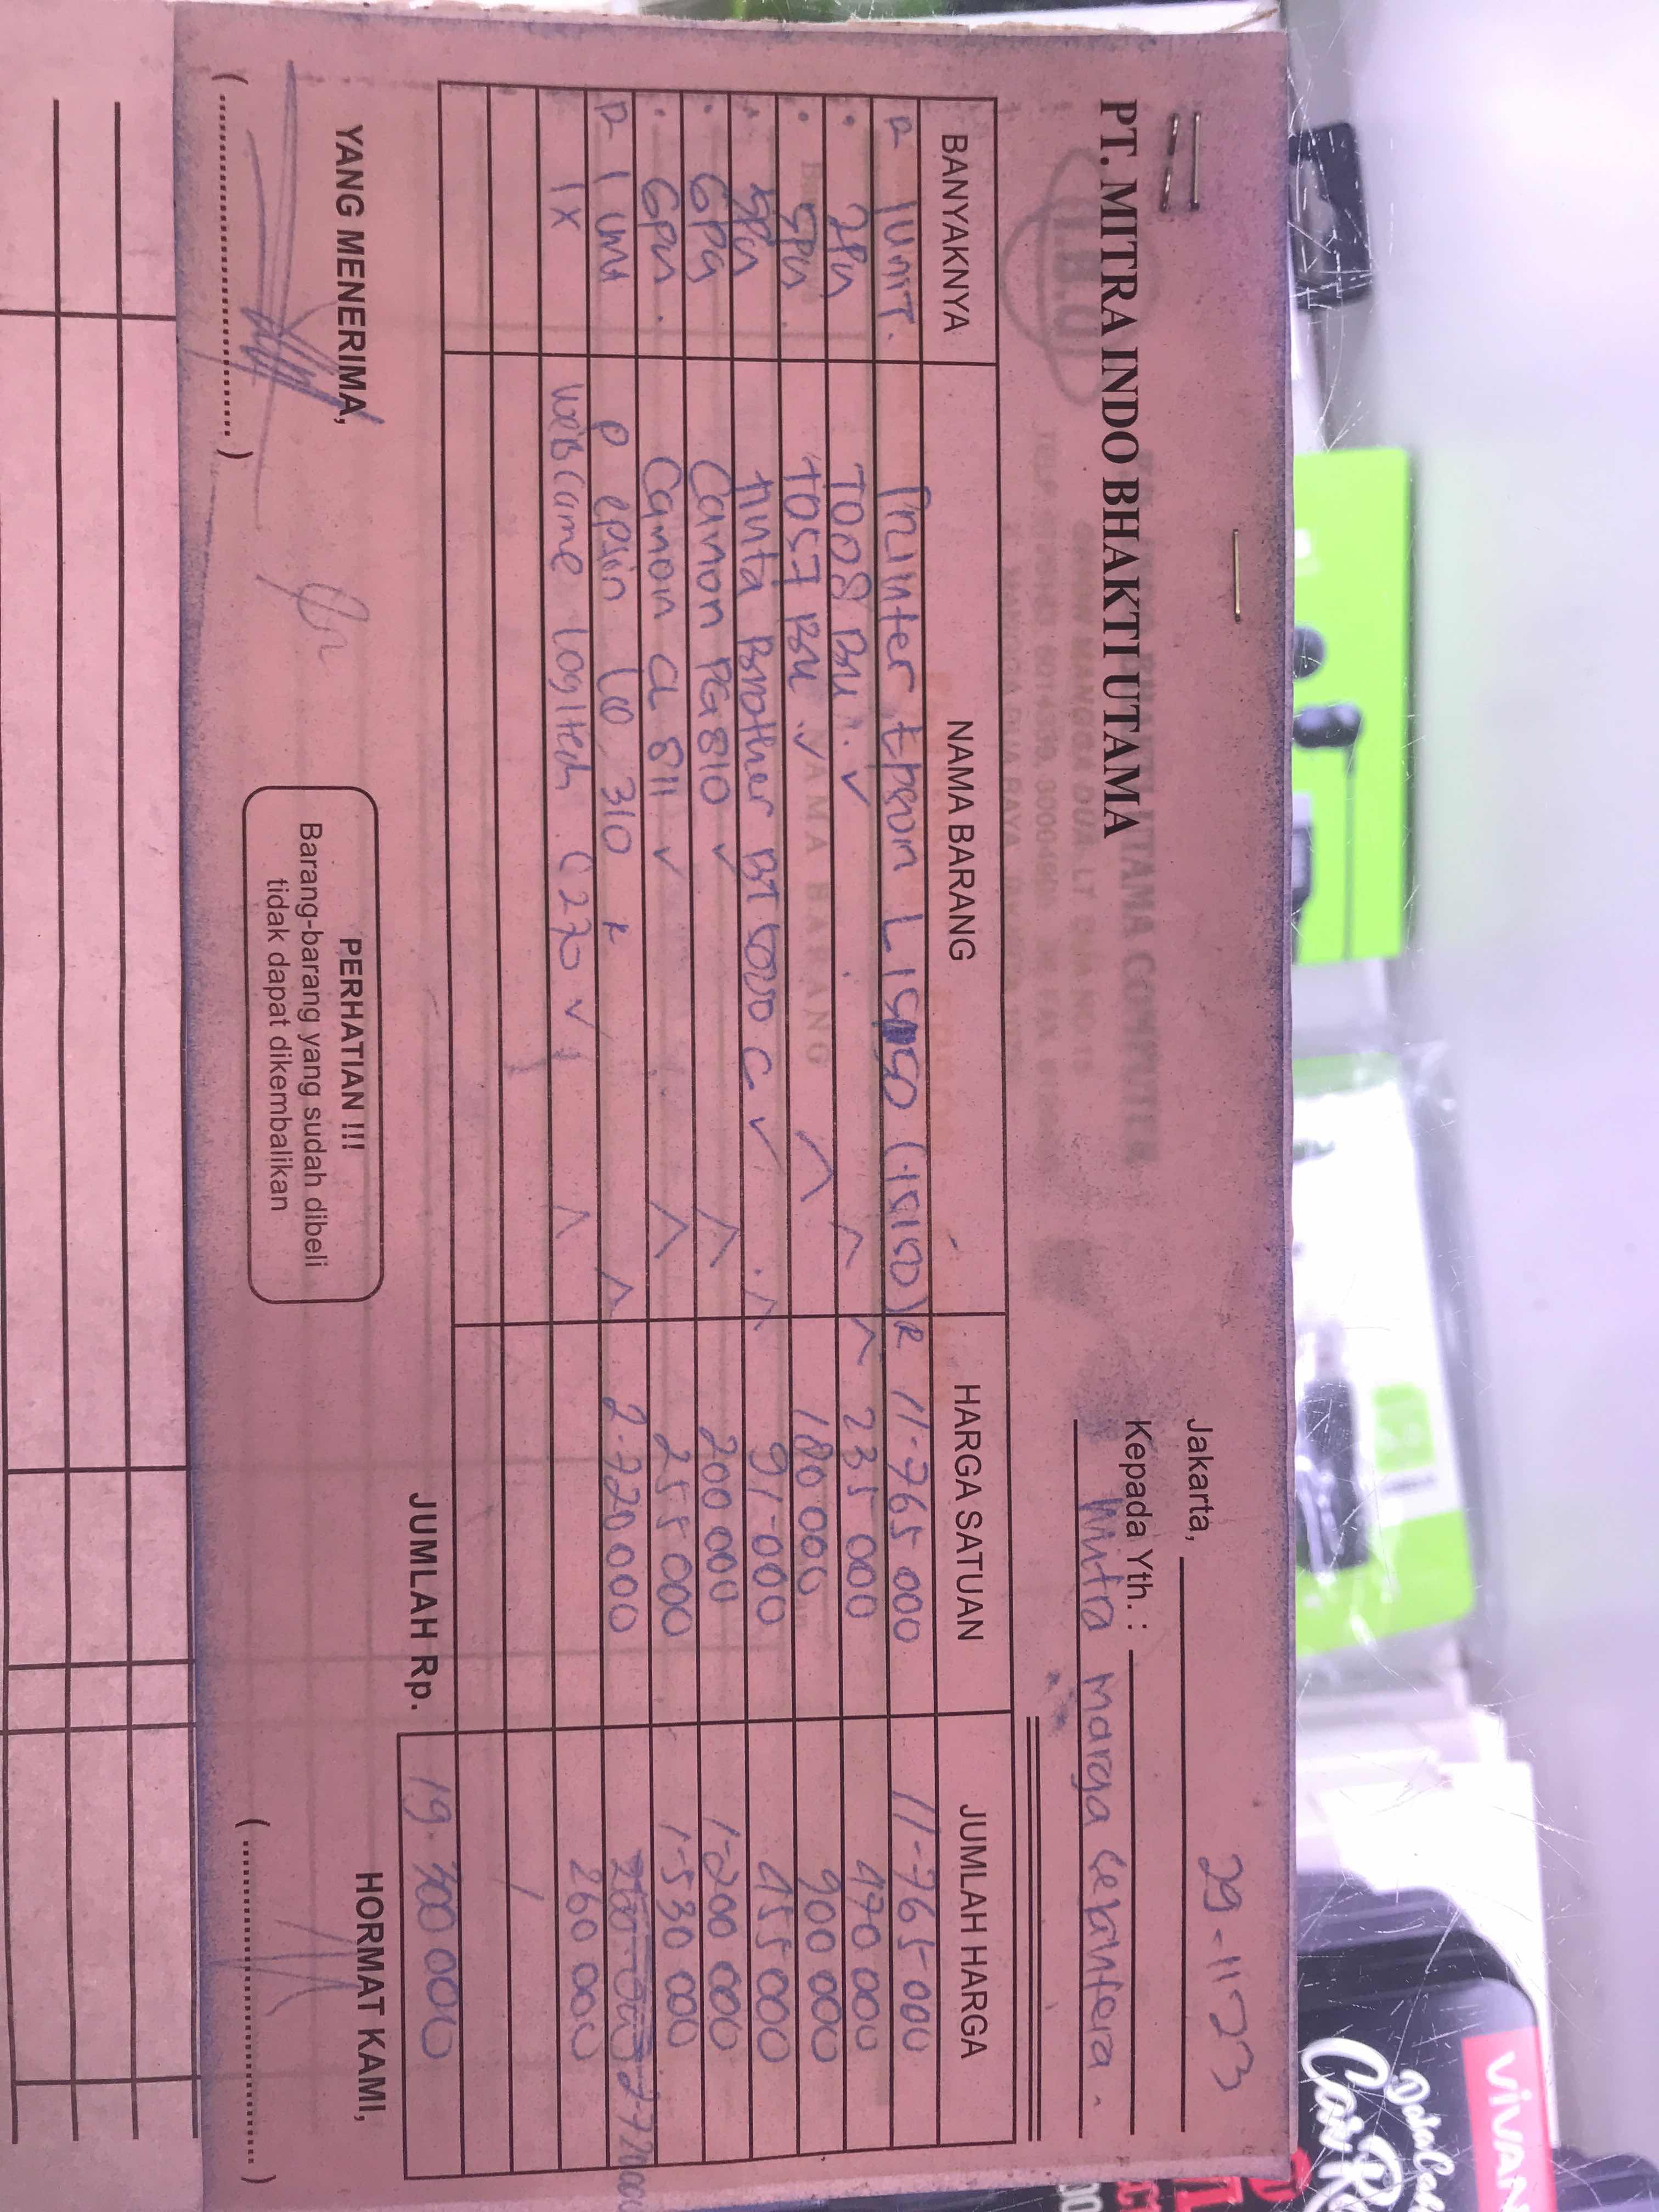 PT. MITRA INDO BHAKTI UTAMA
Jakarta, 29-11-23
Kepada Yth. :
Mitra Marga Sejahtera.
BANYAKNYA NAMA BARANG HARGA SATUAN JUMLAH HARGA
1 UNIT. Printer Epson L15150 (15150) 11-765 000 11-765 000
2 Pcs T008 Blk 235 000 470 000
5 Pcs T057 Blk 180 000 900 000
5 Pcs tinta Brother BT 5000 C 91-000 455 000
6 Pcs Canon PG 810 200 000 1-200 000
6 Pcs. Canon CL 811 255 000 1-530 000
1 unit epson LQ 310 2-720 000 2-720000
1 X WebCame Logitech C270 260 000
JUMLAH Rp. 19. 300 000
YANG MENERIMA,
PERHATIAN !!!
Barang-barang yang sudah dibeli
tidak dapat dikembalikan
HORMAT KAMI,
ViVAN
Data Ca
Car R